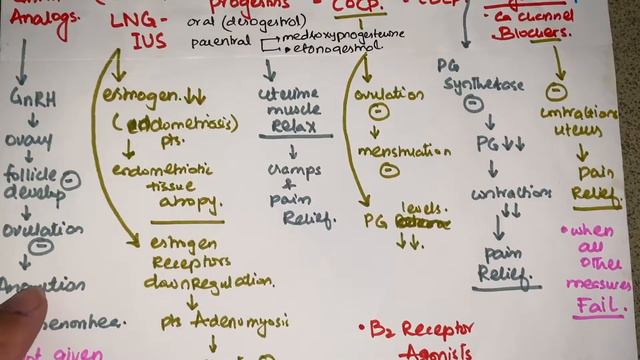 Analogs.
LNG-
IUS
progestins
oral (desogestrol)
parentral → medroxyprogesterone
• etonogestrol
• COCP
• Ca channel
Blockers.
GnRH
ovary
follicle
develop
Ovulation
estrogen ↓↓
(endometriosis)
pts.
endometriotic
tissue
atropy.
estrogen
Receptors
downRegulation.
pts Adenomyosis
uterine
muscle
Relax
cramps
&
pain
Relief.
ovulation
menstruation
PG levels.
↓↓.
PG
Synthetase
PG↓↓
contractions
↓↓
pain
Relief.
contractions
uterus
pain
Relief.
• when
all
other
measures
Fail.
• B2 Receptor
Agonists
given